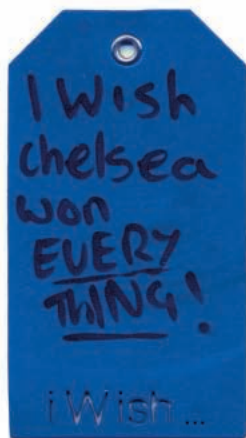 I Wish
chelsea
won
EVERY
THING!
i Wish...